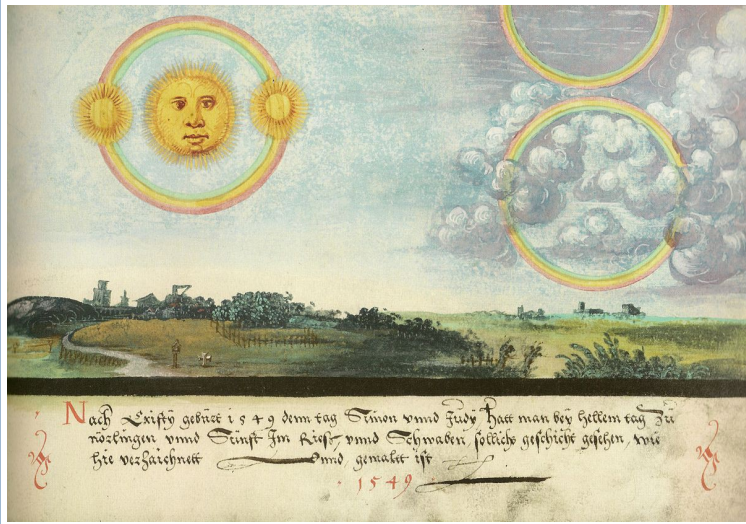 Nach Cristÿ gebürt 1549 denn tag Simon vnnd Judÿ Hatt man beÿ hellem tag Zü
nörlingen vnnd Sunst Im Riesz vnnd Schwaben solliche geschicht gesehen, wie
hie verzaichnett vnnd gemaltt ist
1549